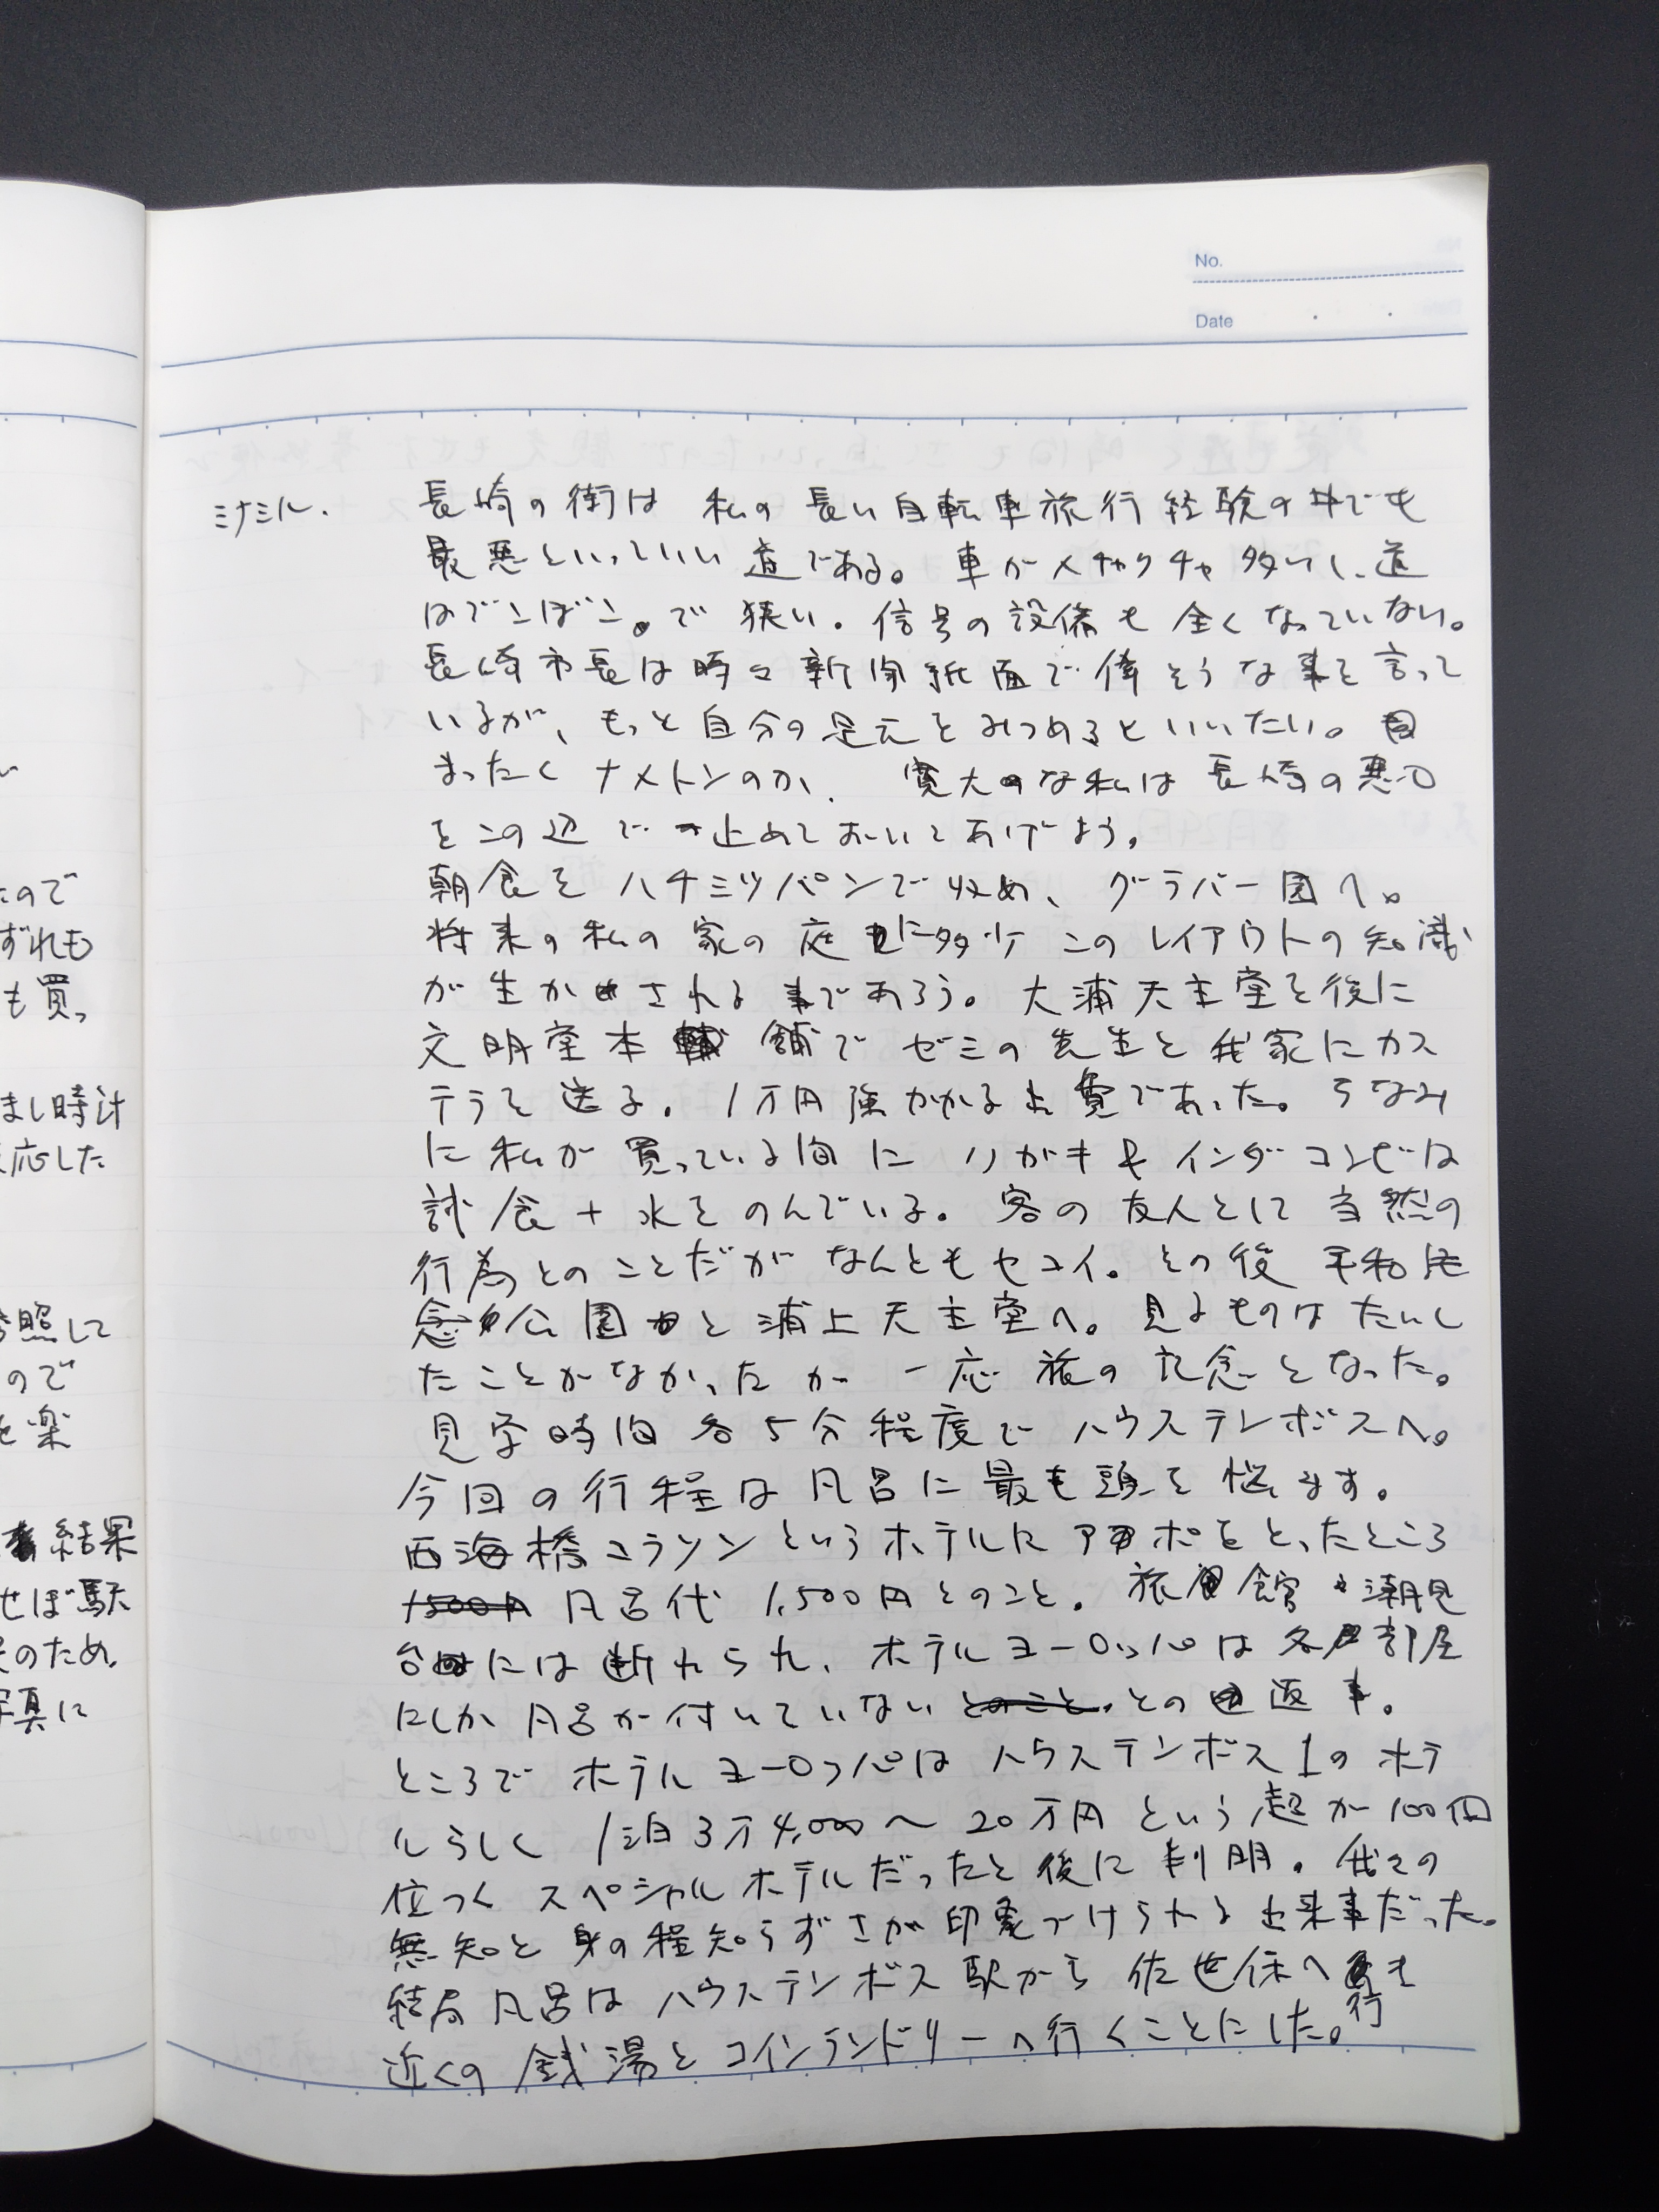 No.
Date
ミナミル.
長崎の街は 私の長い自転車旅行経験の中でも
最悪といっていい道である。車がメチャクチャ多いし、道
はでこぼこ。で狭い。信号の設備も全くなっていない。
長崎市長は時々新聞紙面で偉そうな事を言って
いるが、もっと自分の足元をみつめろといいたい。
まったくナメトンのか。寛大な私は長崎の悪口
をこの辺で止めておいてあげよう。
朝食をハチミツパンで収め、グラバー園へ。
将来の私の家の庭に多少このレイアウトの知識
が生かされる事であろう。大浦天主堂を後に
文明堂本舗でゼミの先生と我家にカス
テラを送る。1万円強かかる出費であった。ちなみ
に私が買っている間にハガキ&インダーコンビは
試食+水をのんでいる。客の友人として当然の
行為とのことだがなんともセコイ。その後平和記
念公園と浦上天主堂へ。見るものはたいし
たことがなかったが一応旅の記念となった。
見学時間各5分程度でハウステンボスへ。
今回の行程は風呂に最も頭を悩ます。
西海橋コラソンというホテルにアポをとったところ
1500円 風呂代1,500円とのこと。旅館潮見
台には断わられ、ホテルヨーロッパは各部屋
にしか風呂が付いていない とのこと。との返事。
ところでホテルヨーロッパはハウステンボス1のホテ
ルらしく 1泊3万4,000〜20万円という超が100個
位つくスペシャルホテルだったと後に判明。我々の
無知と身の程知らずさが印象づけられる出来事だった。
結局風呂はハウステンボス駅から佐世保へ行き
近くの銭湯とコインランドリーへ行くことにした。
たので
ずれも
も買っ
まし時計
応した
参照して
ので
を楽
結果
せば駄
のため、
写真に